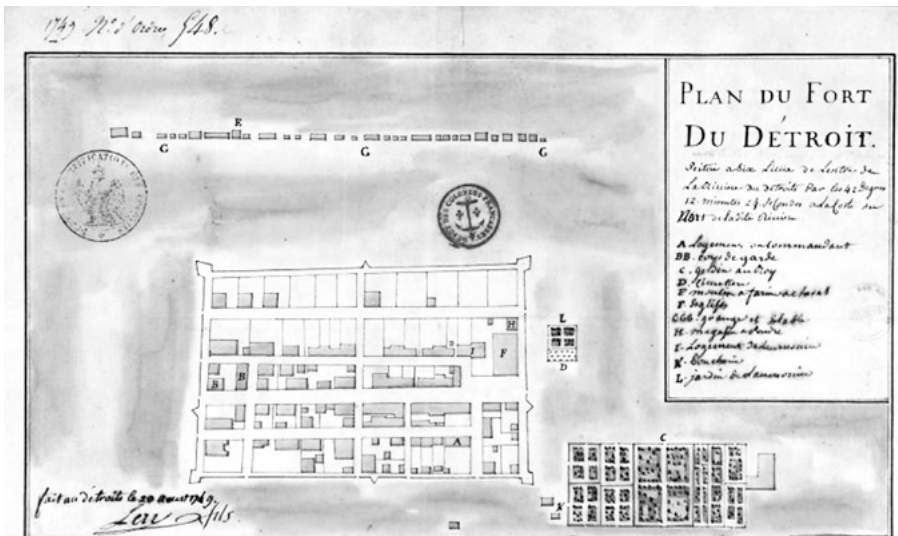 1749 N.o d'ordre 548.
PLAN DU FORT
DU DÉTROIT.
Scitue a dix Lieue de Lentrée de
La Rivierre du détroits Par les 42 Degres
12. minuttes 24. Secondes a La Coste du
Nort de ladite Riviere
A Logement du Commandant
BB. Corps de garde
C. Jardin du Roy
D. Cimetiere
E moulin a farine a cheval
F Esglise
GGG. grange et Etable
H magasin a Poudre
I. Logement de Laumonier
K. Boucherie
L. jardin de Laumonier
E
G
G
G
L
D
H
I
F
B
B
A
C
K
fait au détroits le 20 aoust 1749.
Lery fils